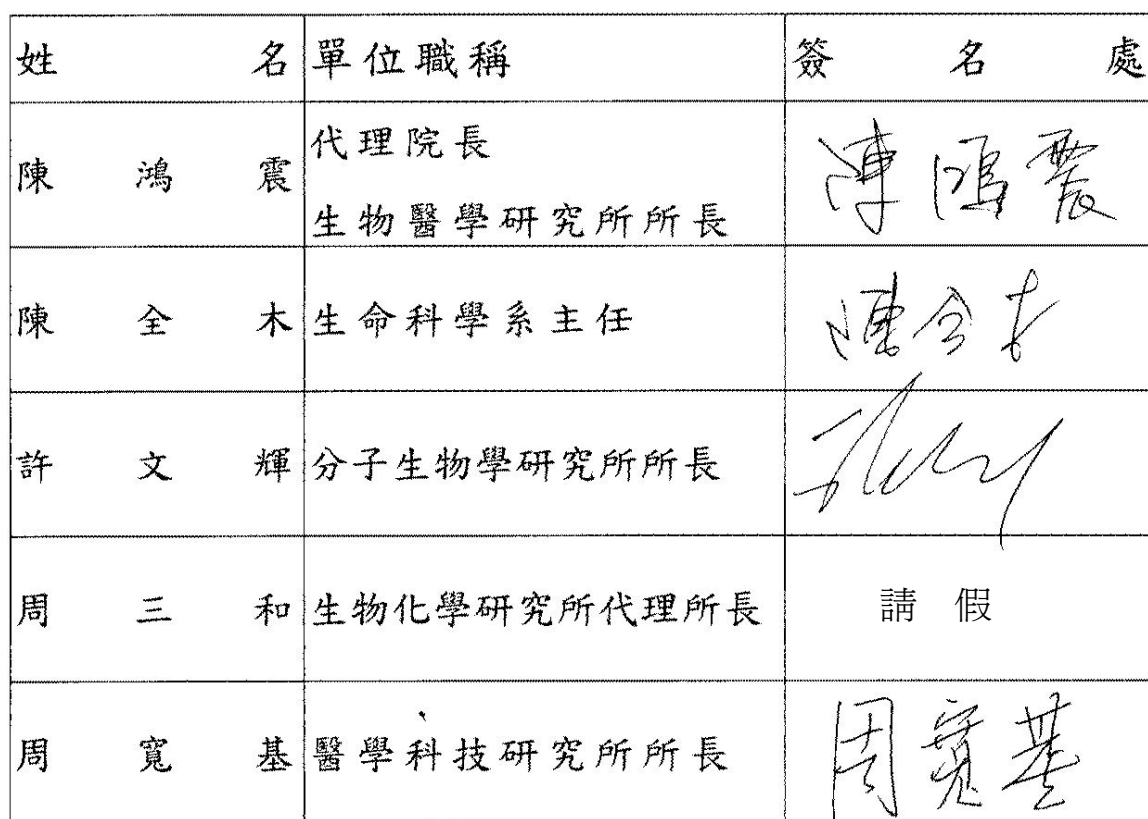 姓名 單位職稱 簽名處
陳鴻震 代理院長 陳鴻震
生物醫學研究所所長
陳全木 生命科學系主任 陳全木
許文輝 分子生物學研究所所長
周三和 生物化學研究所代理所長 請假
周寬基 醫學科技研究所所長 周寬基